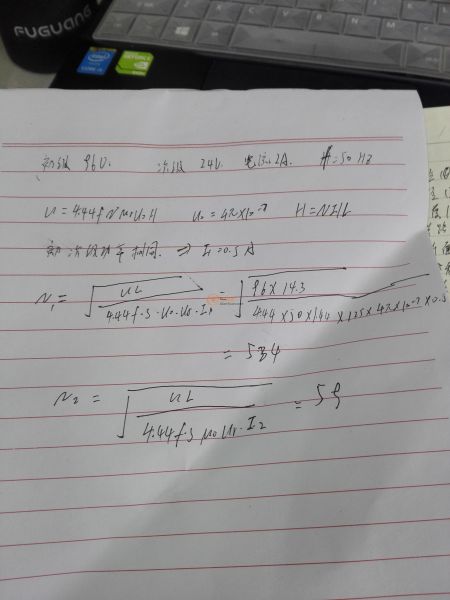 FUGUANG
初级 96V. 次级 24V. 电流2A. f=50HZ
U=4.44fNμ₀μᵣH μ₀=4π×10⁻⁷ H=NI/L
初次级功率相同. ⇒ I₁=0.5A
N₁=√(UL/(4.44f·S·μ₀·μᵣ·I₁))=√(96×14.3/(4.44×50×144×125×4π×10⁻⁷×0.5))
=534
N₂=√(UL/(4.44f·S μ₀ μᵣ·I₂))=59